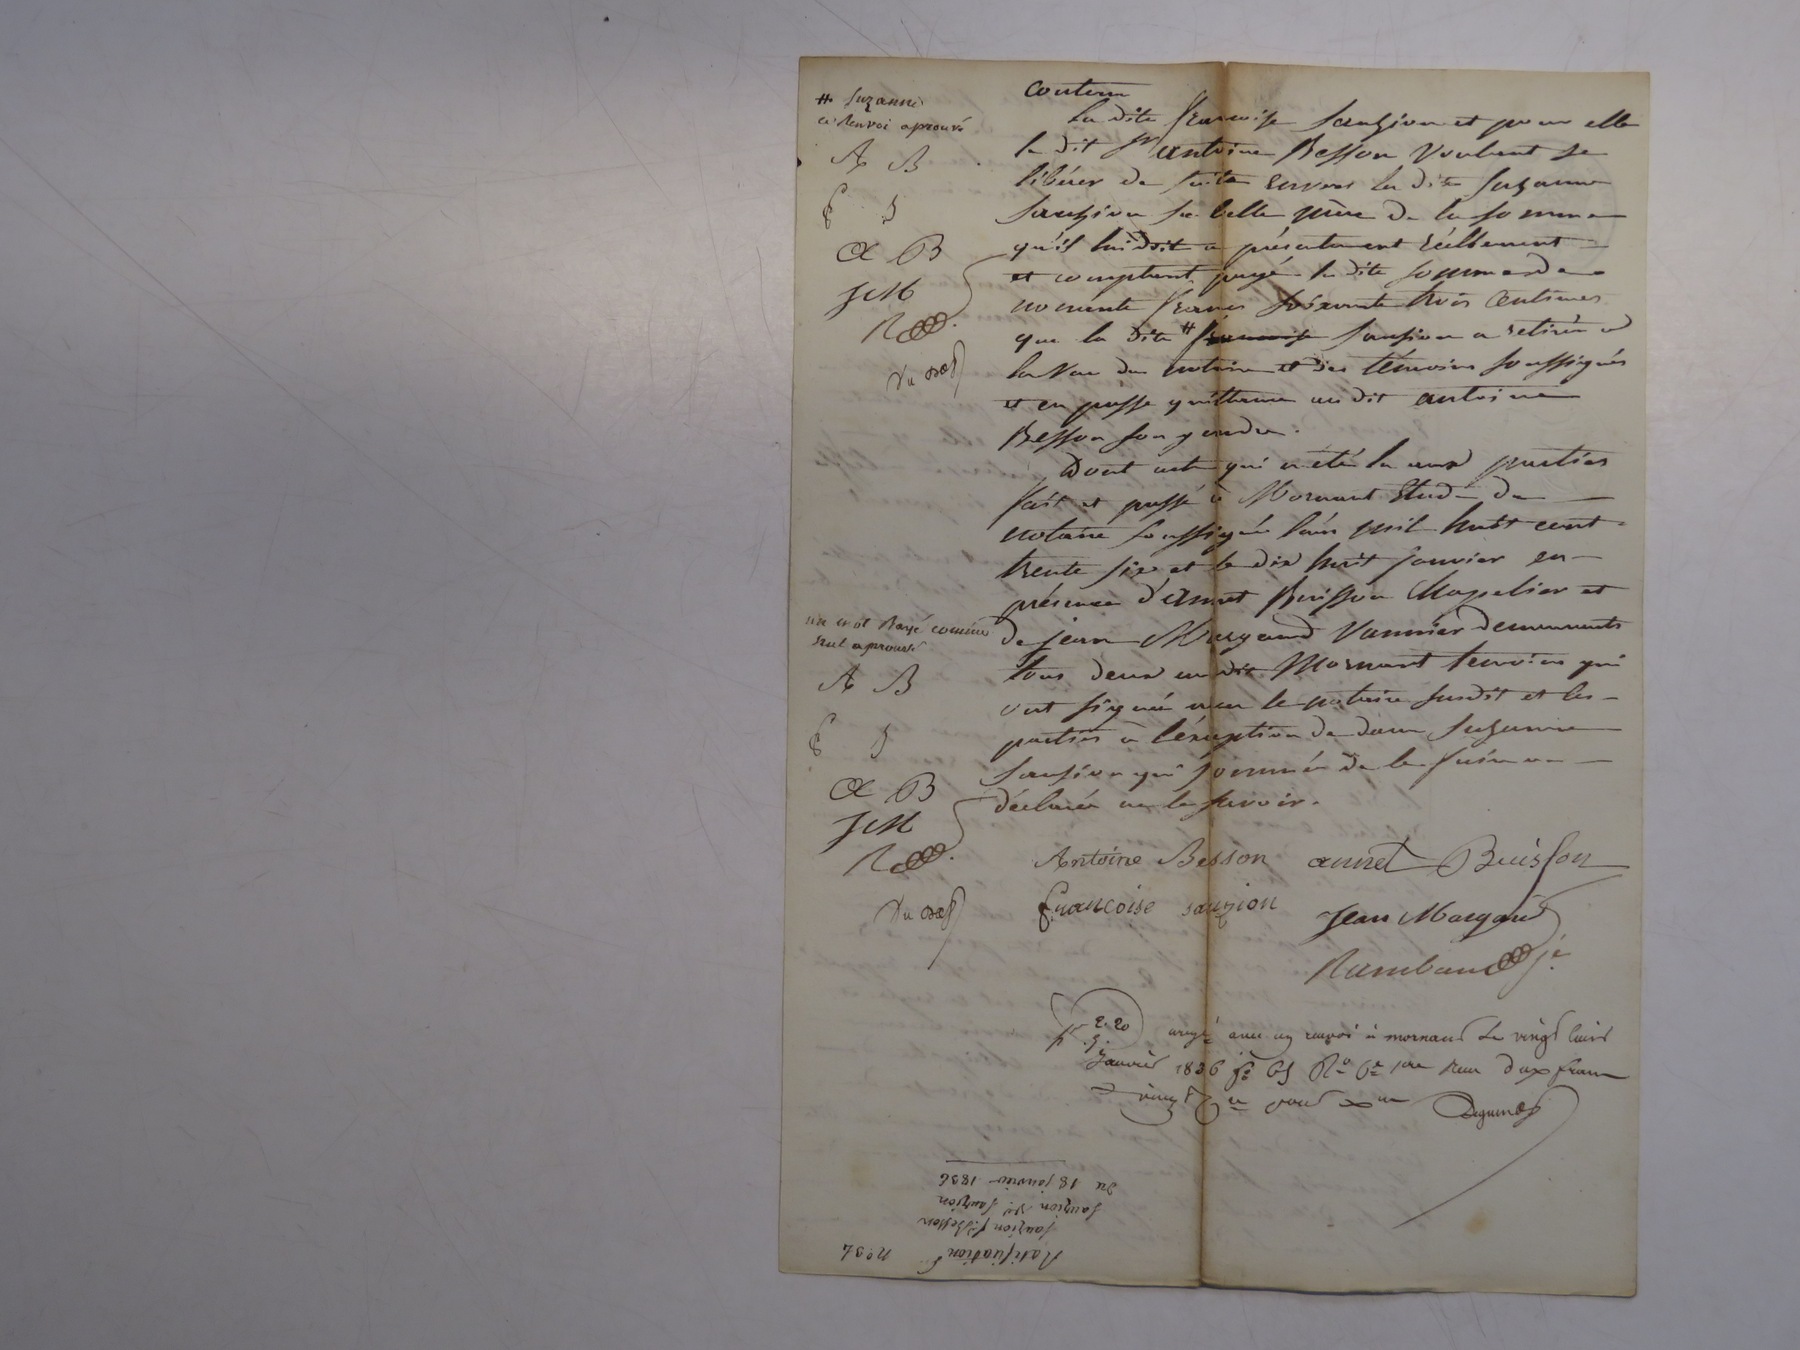 # Suzanne
ce Renvoi aprouvé
A B
F S
A B
JM
R
Vu
contenu
La dite francoise Sauzion et pour elle
le dit Sr antoine Besson Voulant se
libérer de suite envers la dite Suzanne
Sauzion sa belle mère de la somme
qu'il lui doit a présentement réellement
et comptant payé la dite somme de
nonante francs soixante trois Centimes
que la dite # francoise Sauzion a retirée a
la Vue du notaire et des témoins soussignés
et en passe quittance au dit antoine
Besson son gendre.
Dont acte qui a été lu aux parties
fait et passé à Mornant Etude du
notaire soussigné l'an mil huit cent
trente six et le dix huit Janvier en
présence d'Annet Buisson Chapelier et
de jean Margand Vannier demeurants
tous deux au dit Mornant temoins qui
ont signé avec le notaire susdit et les
parties à l'éxception de dame Suzanne
Sauzion qui sommée de le faire a
déclarée ne le savoir.
un mot Rayé comme
nul aprouvé
A B
F S
A B
JM
R
Vu
Antoine Besson annet Buisson
francoise sauzion Jean Margand
Rambaud je
2. 20
avec un renvoi à mornant Le vingt
Janvier 1836 fo 65 Ro deux francs
vingt
n°34 Ratification
Sauzion f. Besson
Sauzion Ve Sauzion
Du 18 janvier 1836